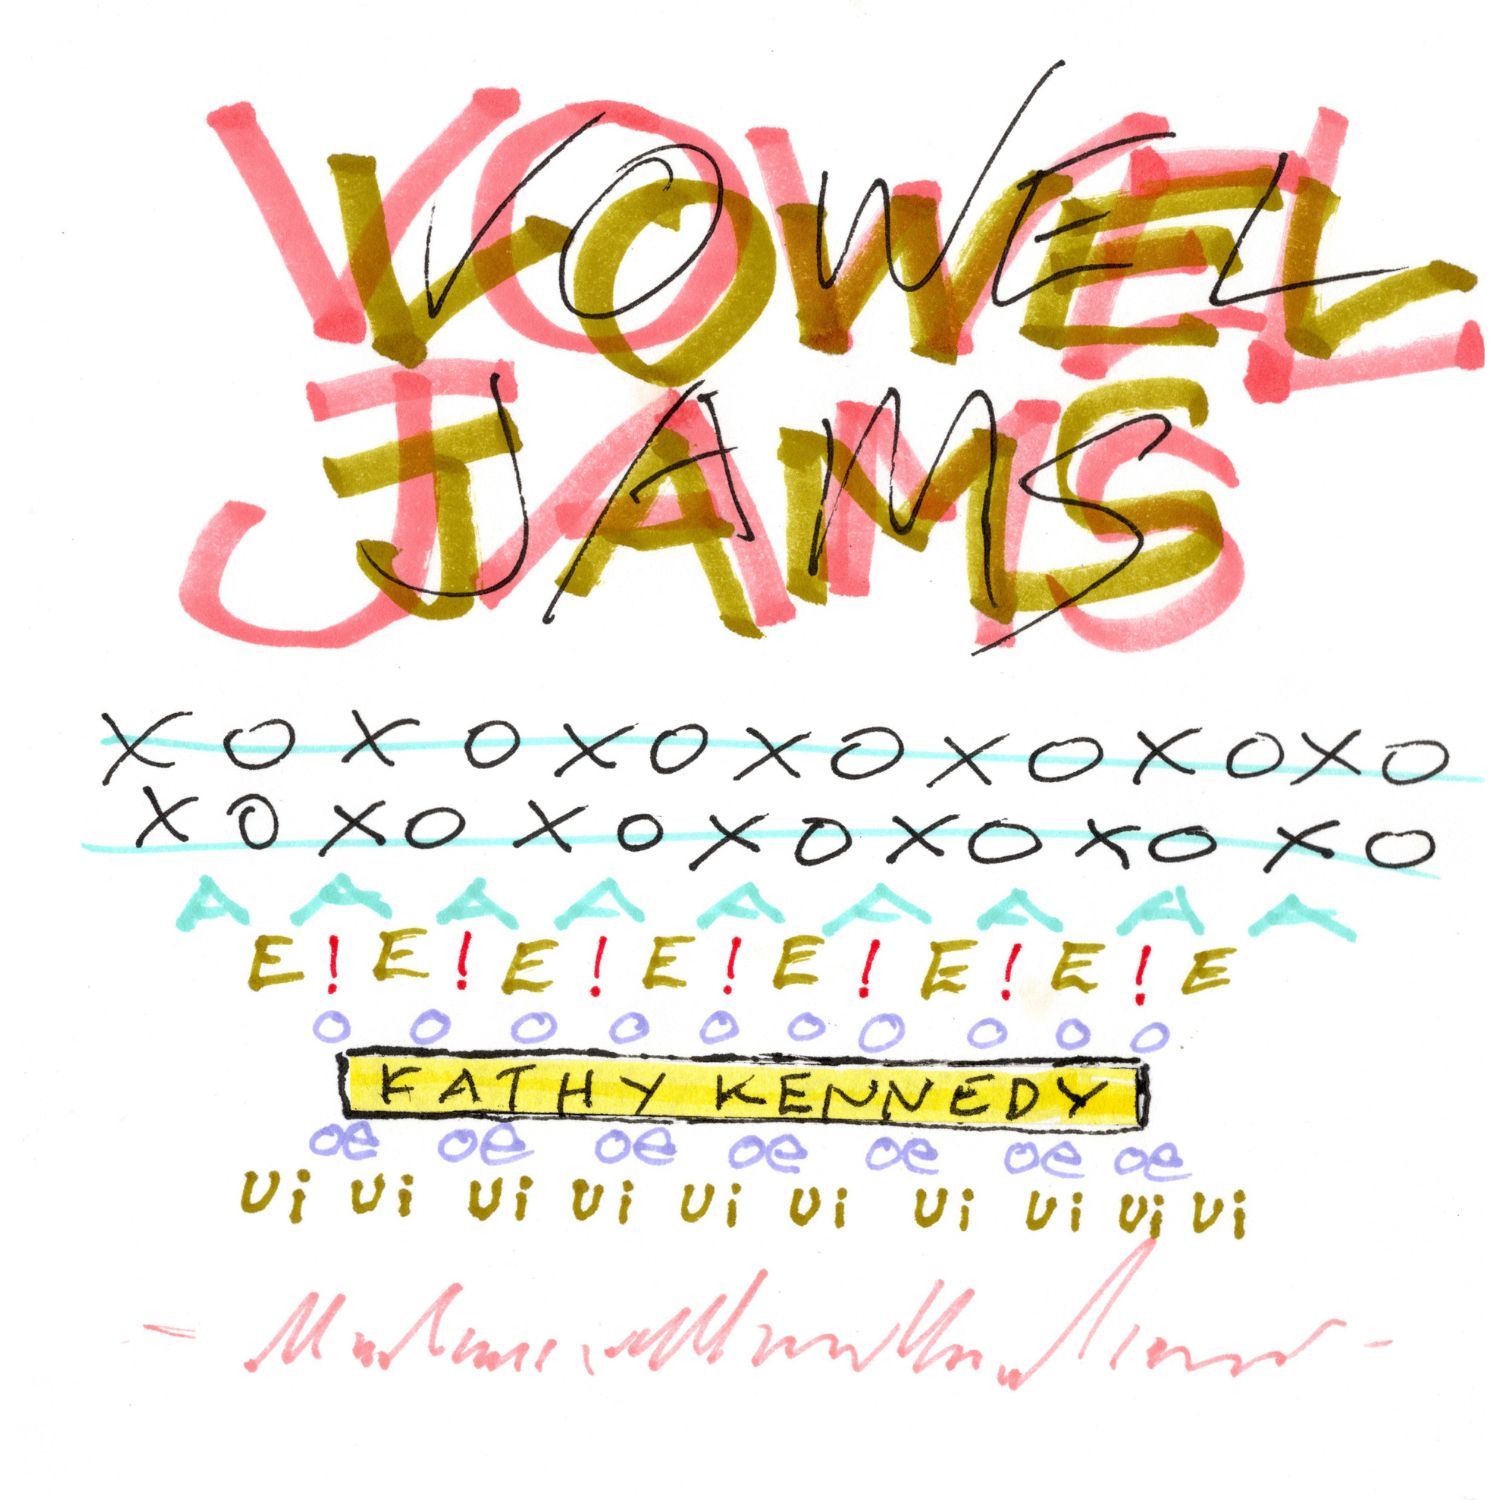 VOWEL
JAMS
X O X O X O X O X O X O X O
X O X O X O X O X O X O X O
A A A A A A A A A
E ! E ! E ! E ! E ! E ! E ! E
O O O O O O O O O O
KATHY KENNEDY
oe oe oe oe oe oe oe
Ui Ui Ui Ui Ui Ui Ui Ui Ui Ui